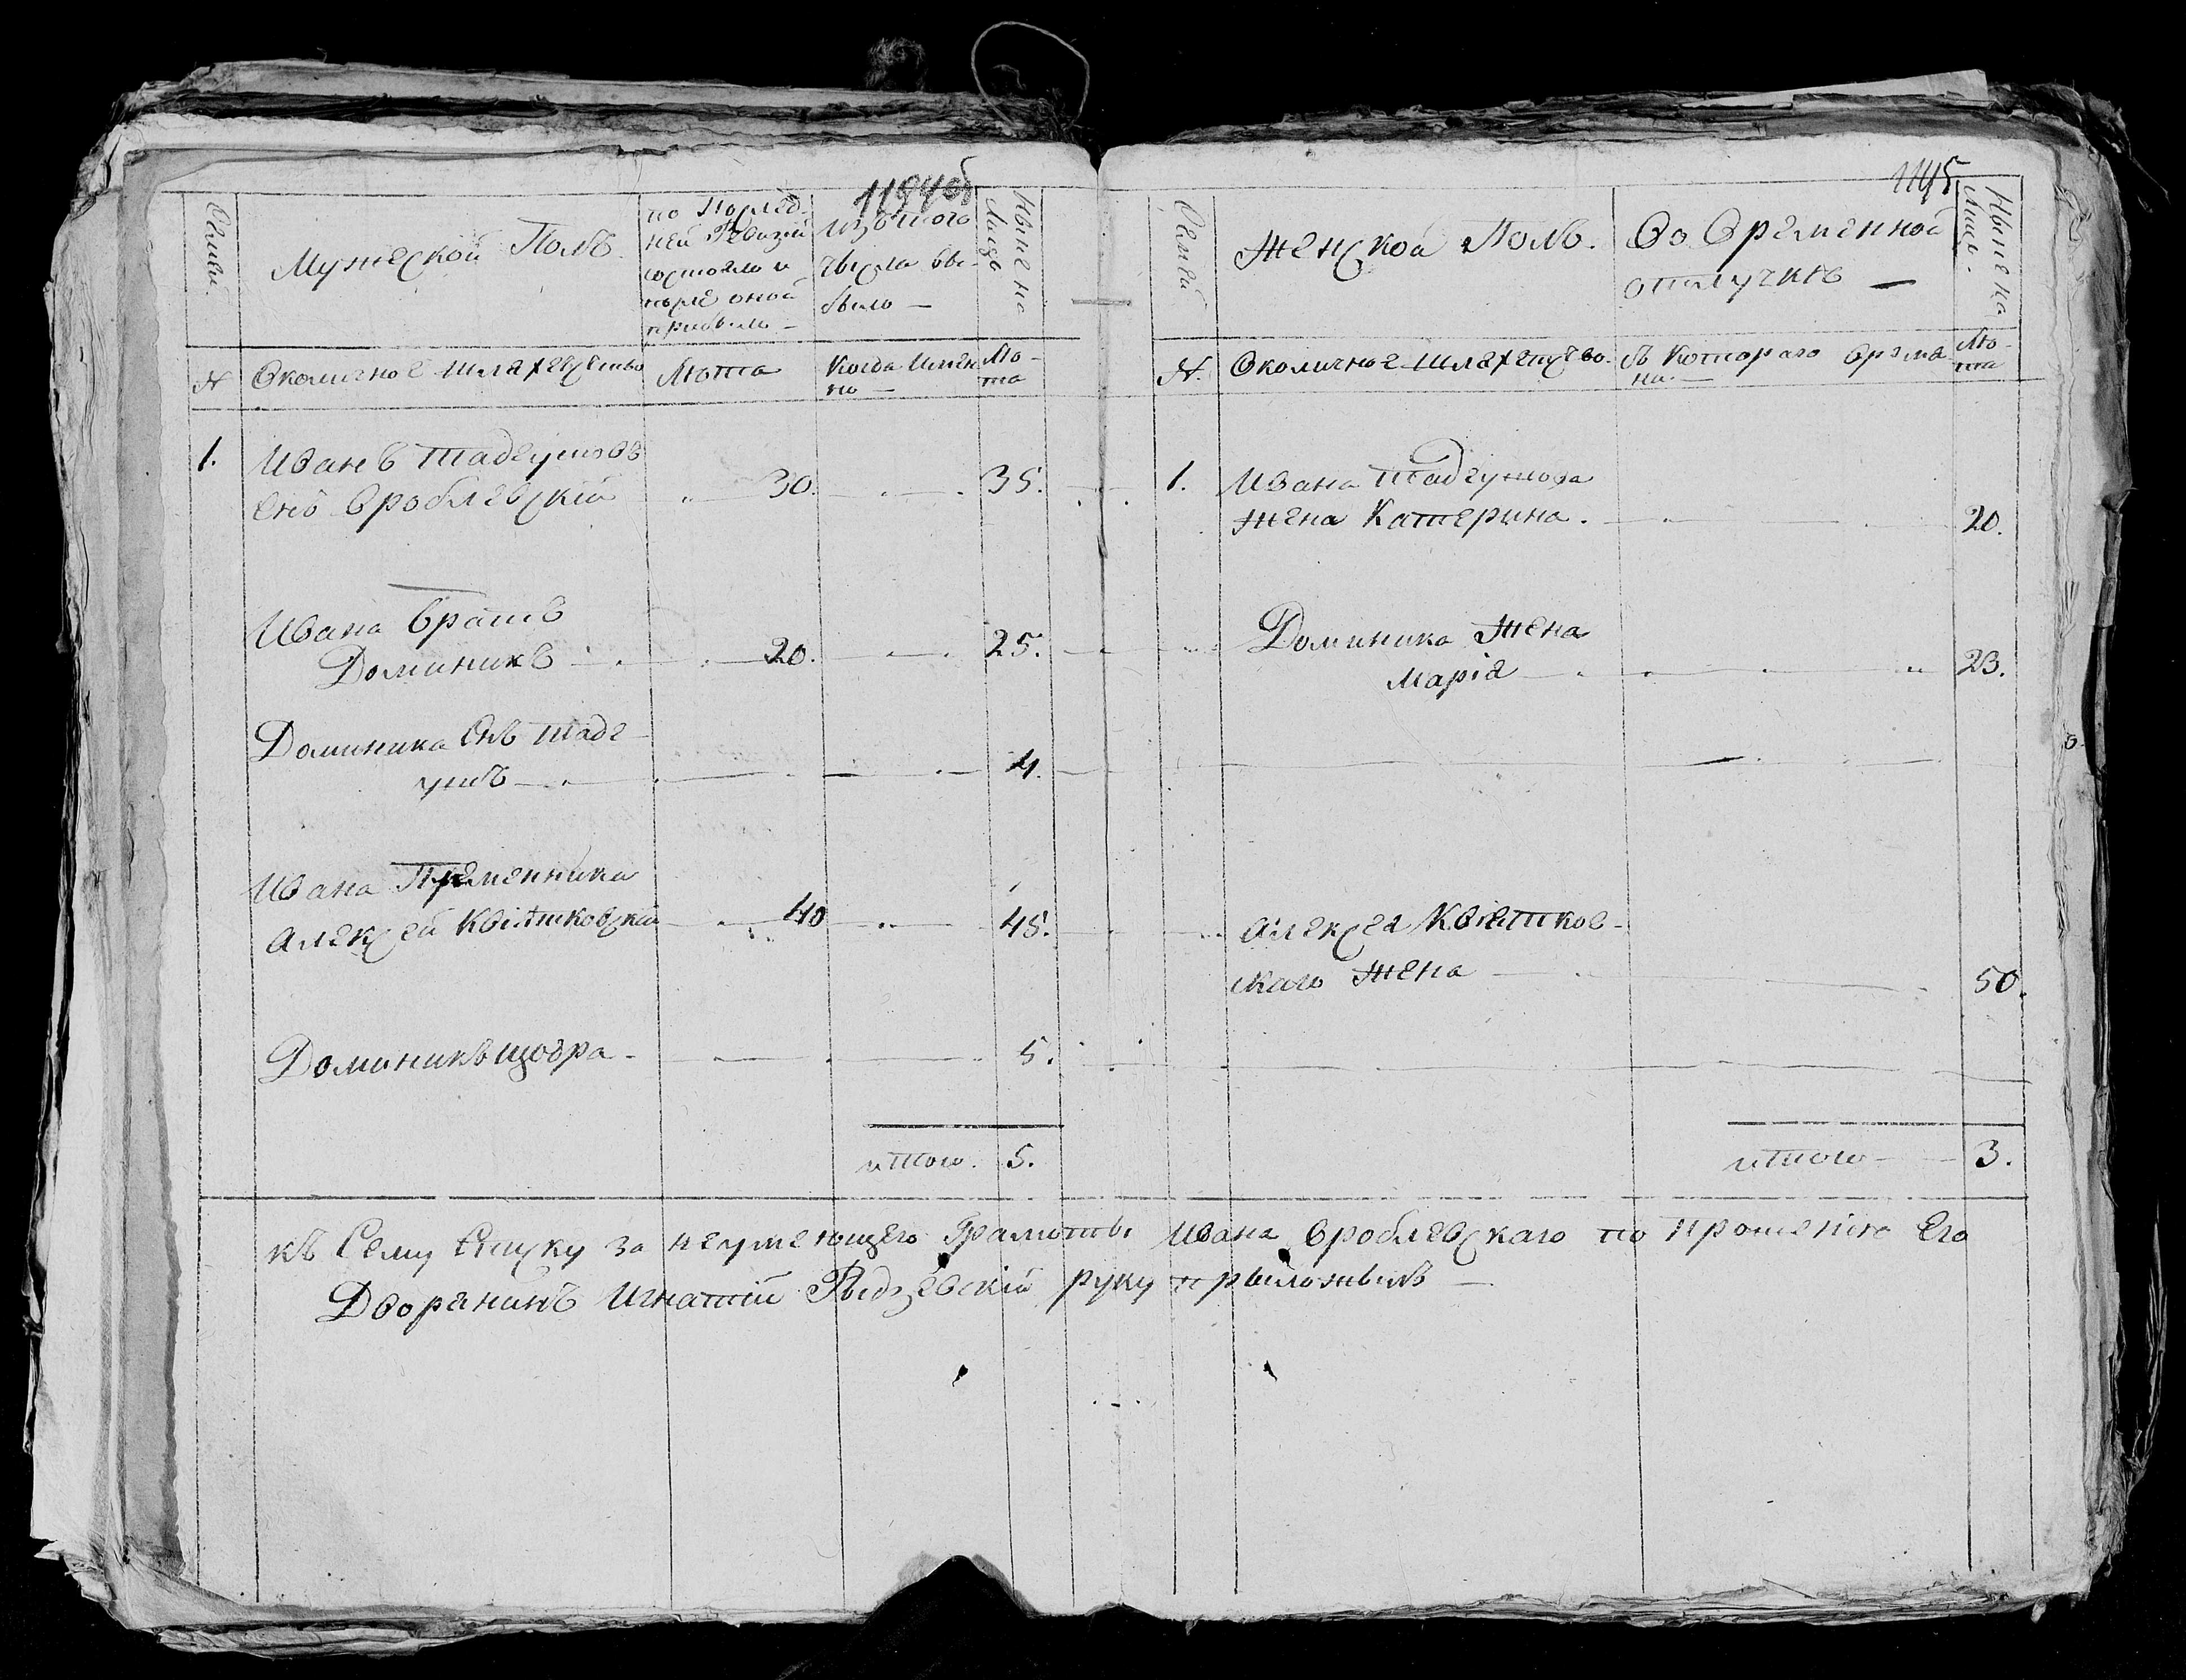 1194об
Семьи
Мужеской Полъ.
по Послед-
ней Ревизіи
состояло и
после оной
прибыло —
Изътого
числа вы-
было —
Ныне на
Лицо
№
Околичное шляхетство
Люта
Когда Имен
но —
Лю-
та
1. Иванъ Тадеушовъ
снъ Вроблевскій 30. 35.
Ивана братъ
Доминикъ 20. 25.
Доминика Снъ Таде-
ушъ 4.
Ивана Племенника
Алексей Квiятковскій 40 45.
Доминикъ щодра 5.
итого. 5.
1145
Семьи
Женской Полъ.
Во Временной
отлучкѣ —
Ныне на
Лицо.
№.
Околичное шляхетство.
съ Котораго врема
ни. —
Лю-
та
1. Ивана Тадеушова
Жена Катерина. 20.
Доминика Жена
Марія 23.
Алексея Квiятков-
скаго Жена 50.
итого 3.
къ Сему Списку за неумеющего Грамоты Ивана Вроблевскаго по Прошенію Его
Дворянинъ Игнатій руку приложилъ —